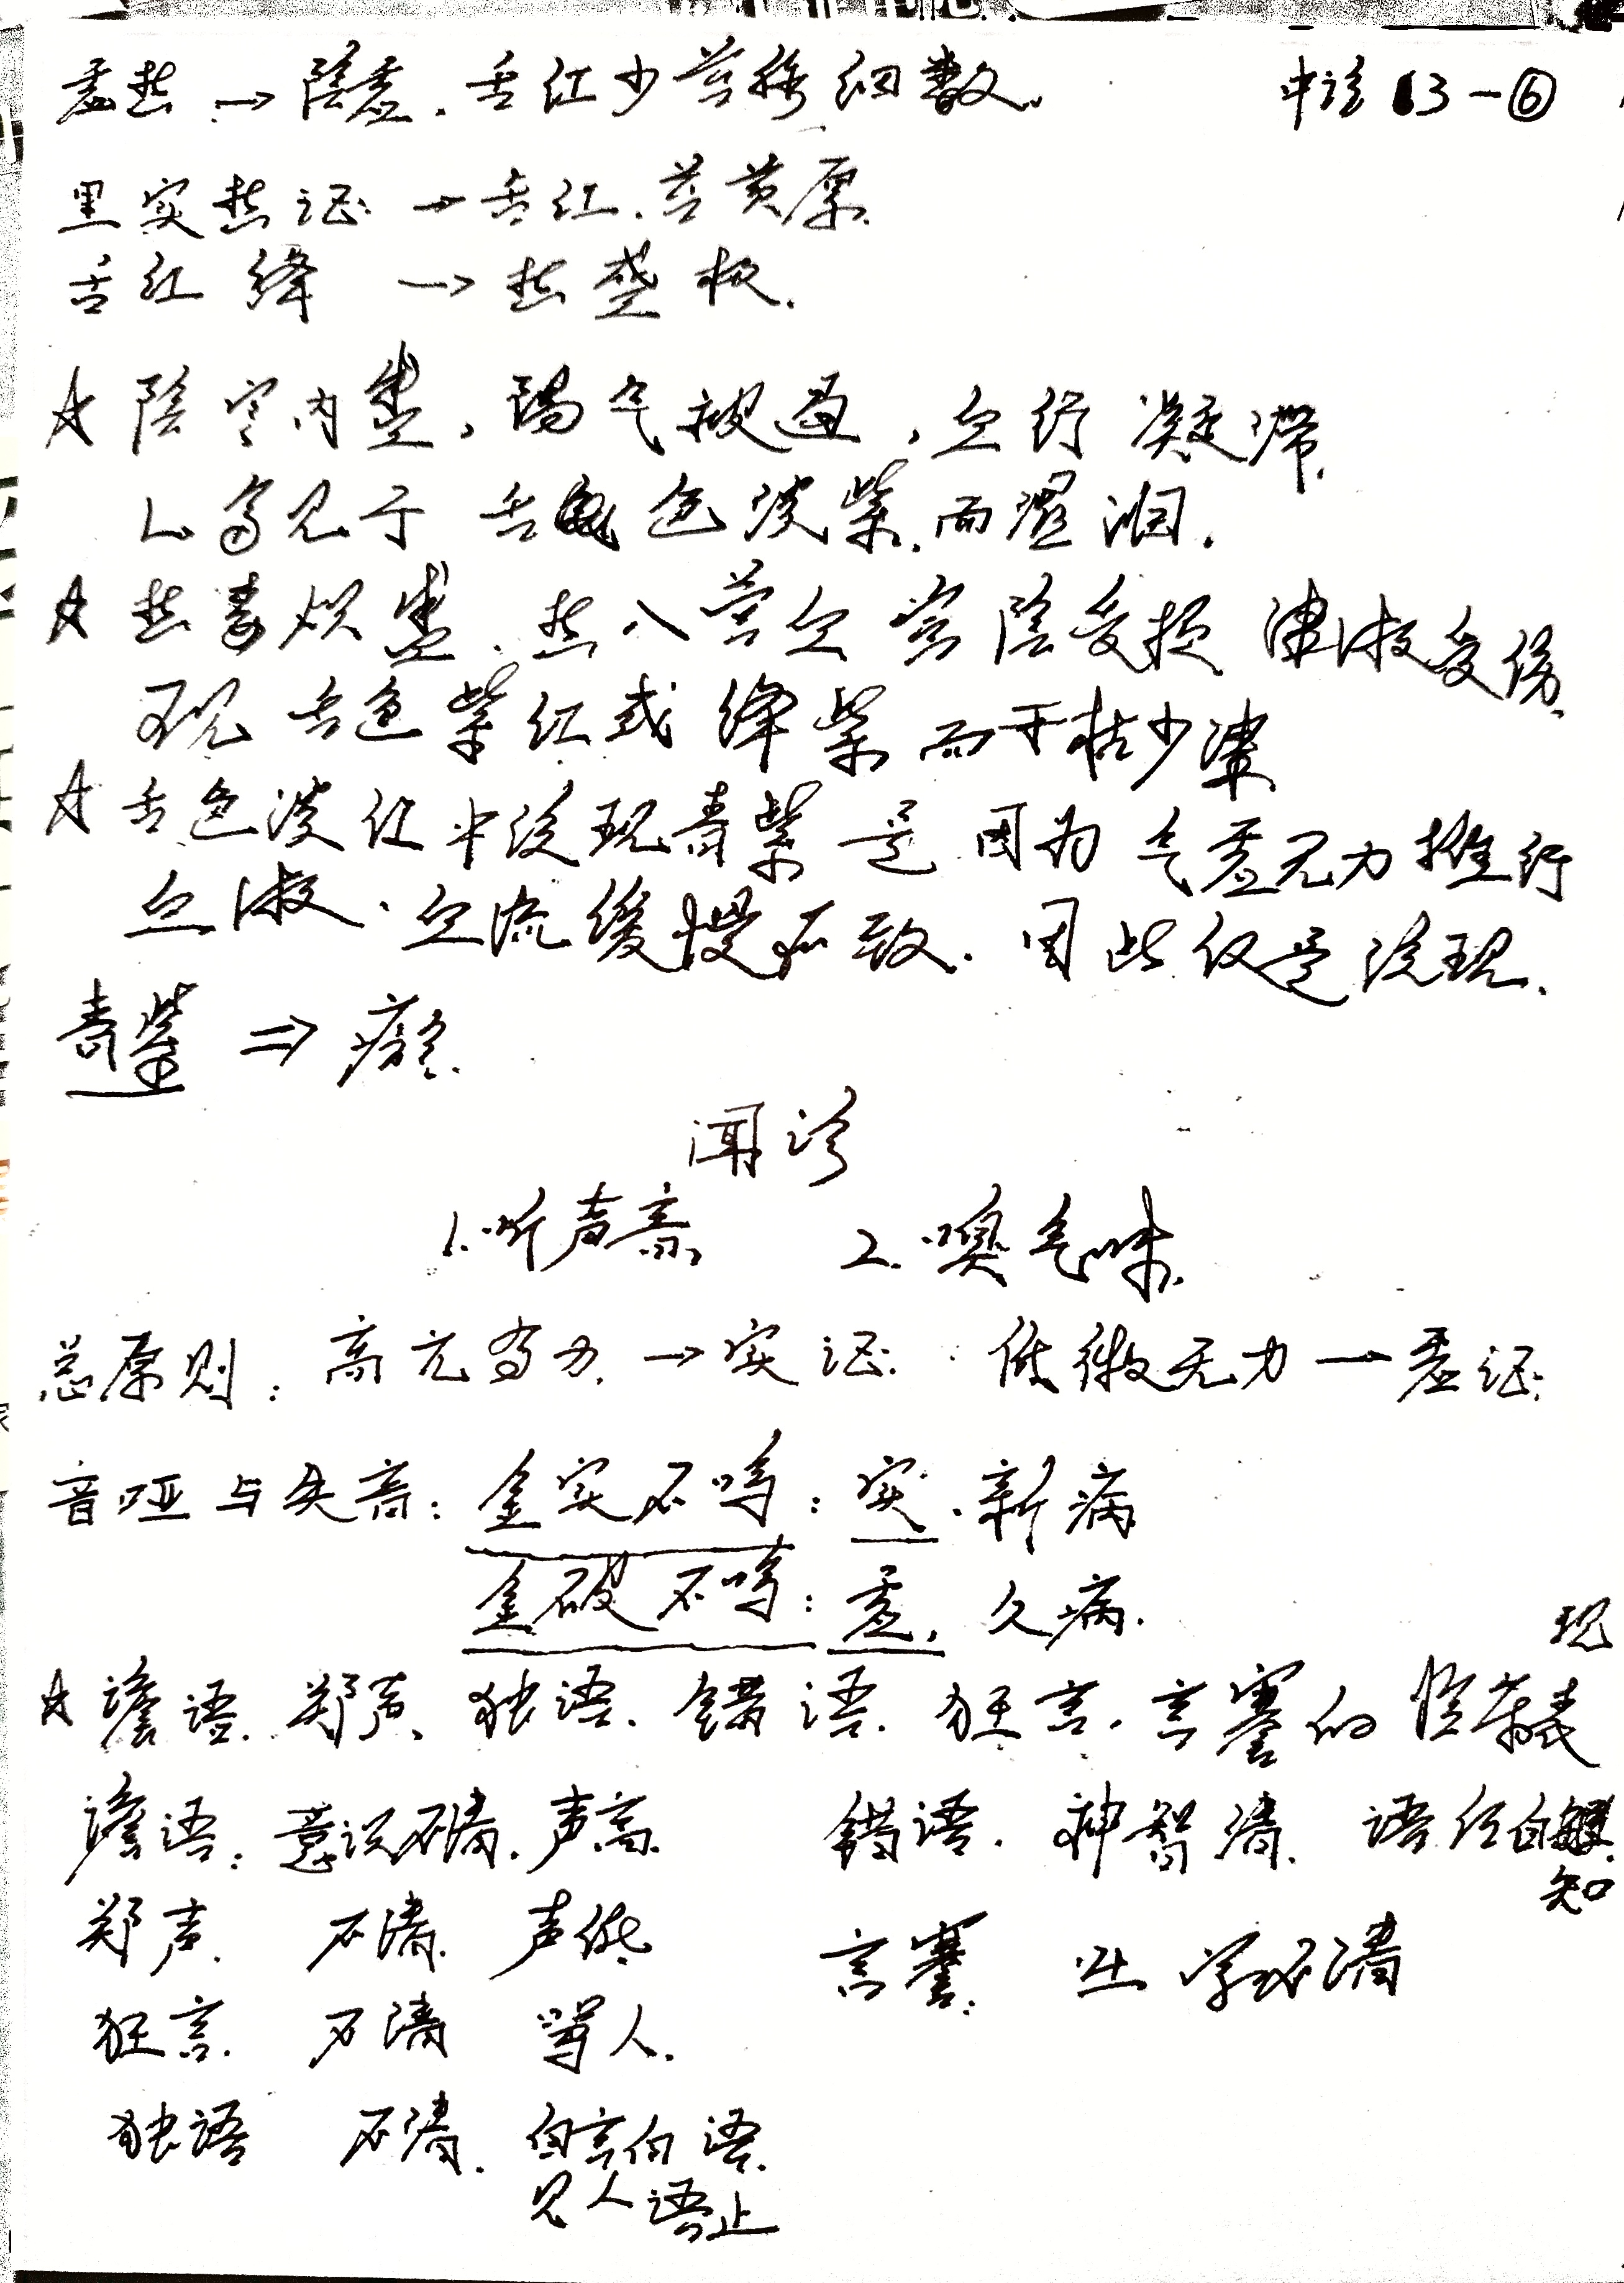 虚热→陰虚.舌红少苔脉细数.
中诊13-⑥
里实热证→舌红.苔黄厚.
舌红绛→热盛极.
☆陰寒内盛,陽气被遏,血行凝滞.
∟多见于舌色淡紫.而湿润.
☆热毒炽盛.热入营血 营陰受损 津液受伤.
现舌色紫红或绛紫而干枯少津
☆舌色淡红中泛现青紫是因为气虚无力推行
血液.血流缓慢所致.因此仅是泛现.
青紫⇒瘀.
闻诊
1.听声音 2.嗅气味.
总原则:高亢有力.→实证. 低微无力—虚证.
音哑与失音:金实不鸣:实.新病
金破不鸣:虚.久病.
现
☆谵语.郑声.独语.错语.狂言.言謇的临床表
谵语:意识不清.声高. 错语.神智清.语后自
知
郑声.不清.声低. 言謇:吐字不清
狂言.不清 骂人.
独语 不清.自言自语.
见人语止